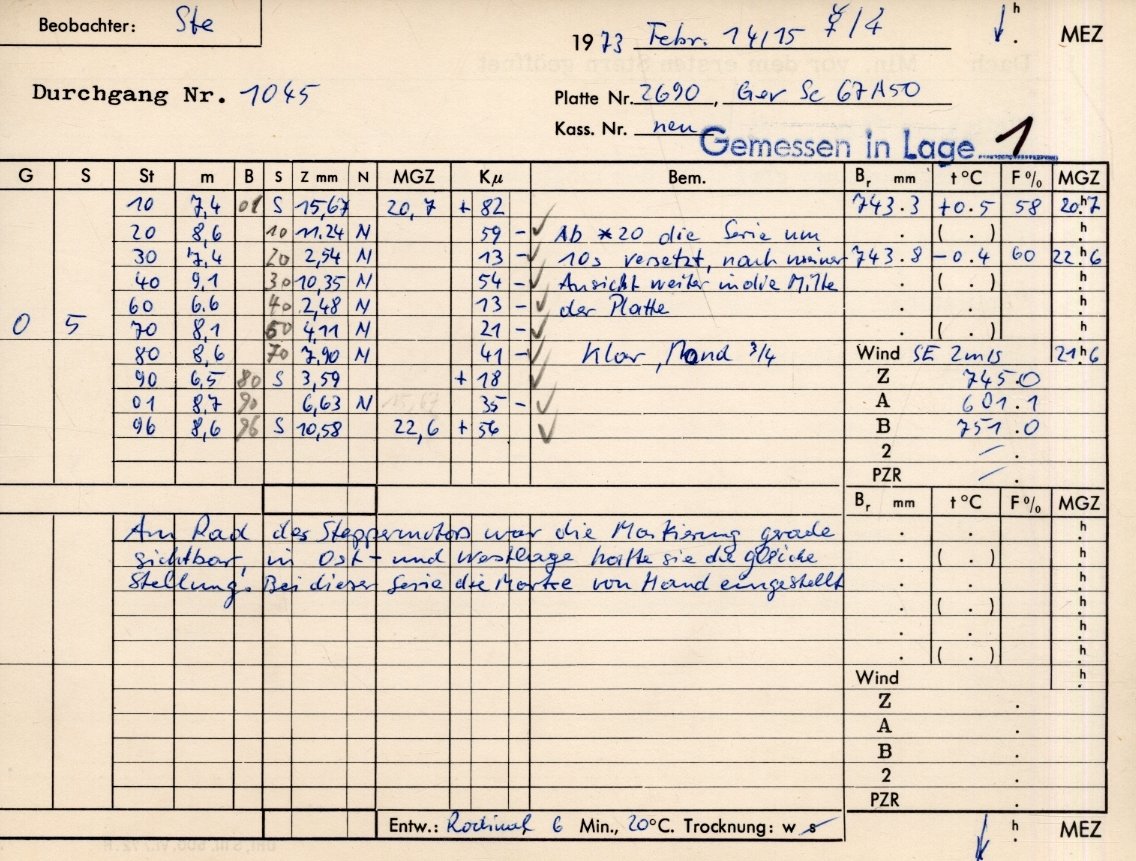 Beobachter: Ste
1973 Febr. 14/15
h
. MEZ
Durchgang Nr. 1045
Platte Nr. 2690, Gev Sc 67A50
Kass. Nr. neu
Gemessen in Lage 1
G S St m B S Z mm N MGZ Kμ Bem. Br mm t°C F% MGZ
10 7,4 01 S 15,67 20,7 + 82 743.3 +0.5 58 20h7
20 8,6 10 11.24 N 59 - ✓ Ab *20 die Serie um . ( . ) h
30 7,4 20 2,54 N 13 - ✓ 10s versetzt, nach meiner 743.8 -0.4 60 22h6
40 9,1 30 10,35 N 54 - ✓ Ansicht weiter in die Mitte . ( . ) h
60 6.6 40 2,48 N 13 - ✓ der Platte . . h
0 5 70 8,1 60 4,11 N 21 - ✓ . ( . ) h
80 8,6 70 7,90 N 41 - ✓ Klar, Mond 3/4 Wind SE 2m/s 21h6
90 6,5 80 S 3,59 + 18 ✓ Z 745.0
01 8,7 90 6,63 N 35 - ✓ A 601.1
96 8,6 96 S 10,58 22,6 + 56 ✓ B 751.0
2 - .
PZR - .
Br mm t°C F% MGZ
Am Rad des Steppermotors war die Markierung gerade . . h
sichtbar, in Ost- und Westlage hatte sie die gleiche . ( . ) h
Stellung. Bei dieser Serie die Marke von Hand eingestellt . . h
. ( . ) h
. . h
. ( . ) h
Wind h
Z .
A .
B .
2 .
PZR .
Entw.: Rodinal 6 Min., 20°C. Trocknung: w s
h
. MEZ